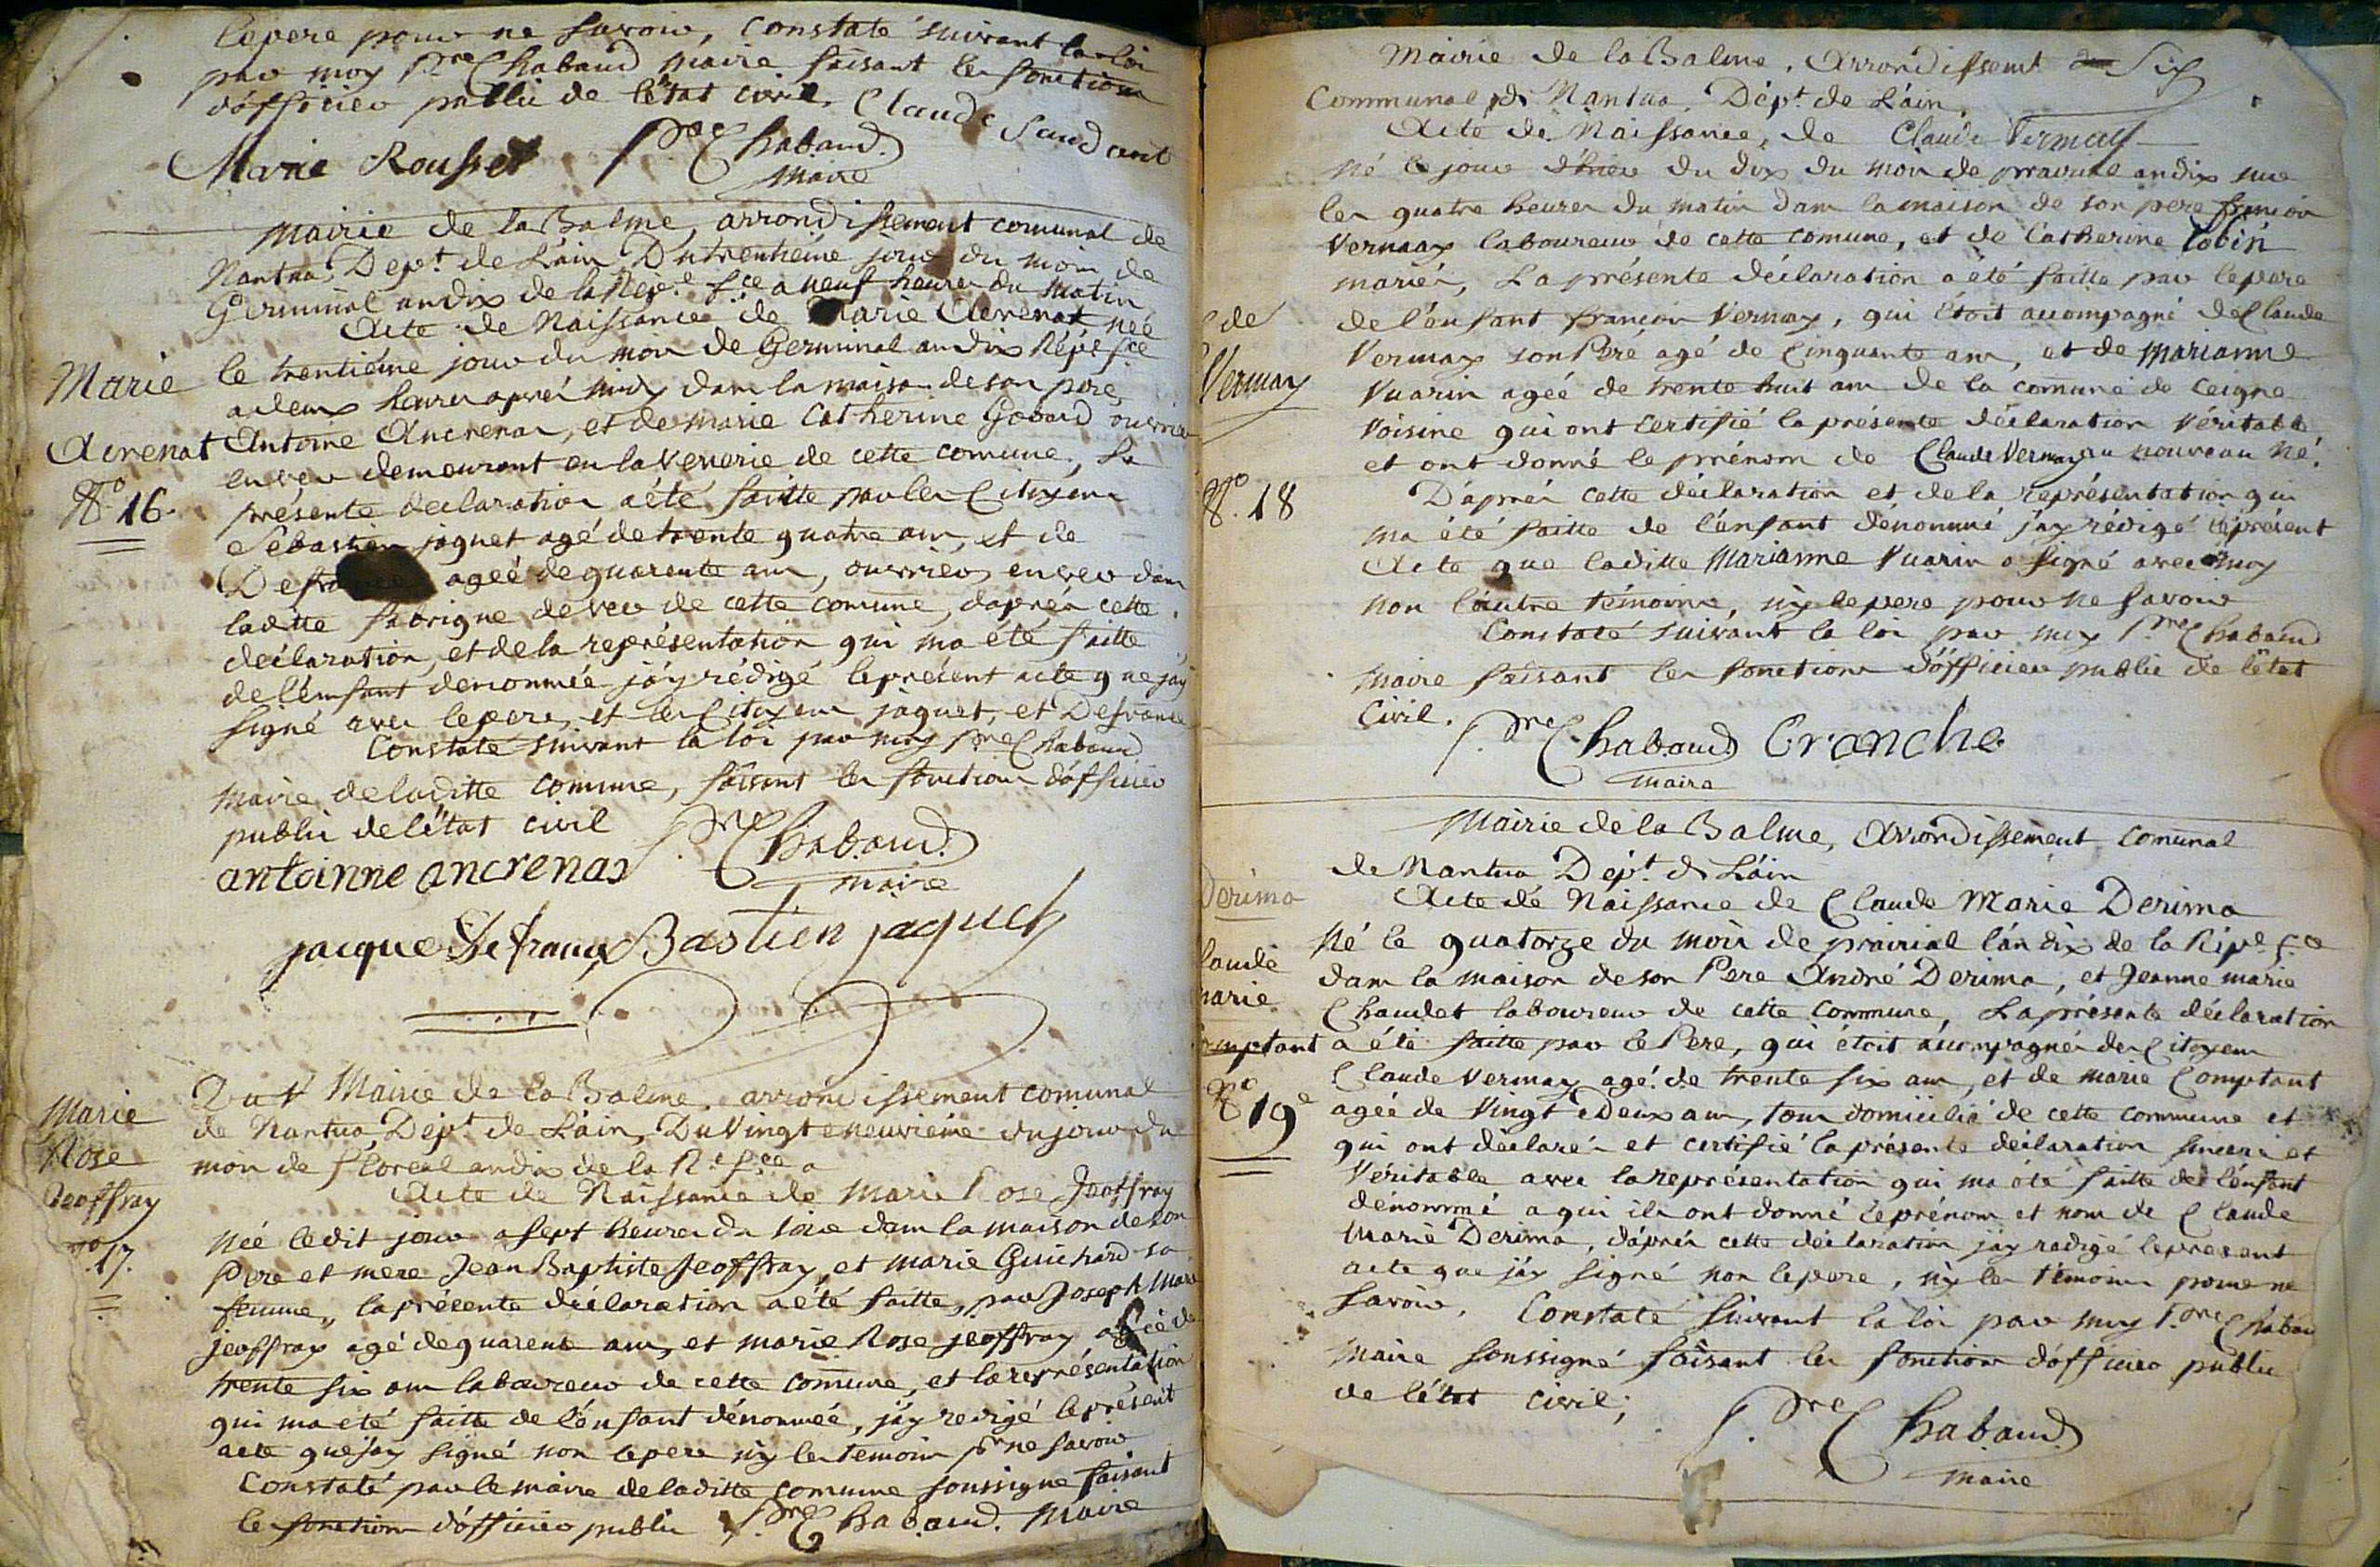 le pere pour ne savoir, Constaté suivant la loi
par moy Pre Chabaud Maire faisant les fonctions
d'officier public de l'état civil. Claude
Marie Rousset Pre Chabaud
Maire
Mairie de la Balme, arrondissement comunal de
Nantua Dept de L'ain Du trentiéme jour du mois de
Germinal an dix de la a neuf heures du matin
Acte de Naissance de Marie Acrenat née
le trentiéme jour du mois de Germinal an dix
Marie
a deux heures aprés midy dans la maison de son pere
Acrenat
Antoine Ancrenas, et de marie Catherine Gobard ouvrier
en ver demeurant en la Verrerie de cette comune, La
No 16
présente declaration a été faitte par les Citoyens
Sebastien jaquet agé de trente quatre ans, et de
agée de quarente ans, ouvriers en ver dans
laditte fabrique de ver de cette comune, daprés cette
déclaration, et de la représentation qui ma été faitte
de l'enfant denommée j'ay rédigé le présent acte que j'ay
signé avec le pere, et les Citoyens jaquet, et Defrance
Constaté suivant la loi par moy Pre Chabaud
Maire de laditte comune, faisant les fonctions d'officier
public de l'état civil Pre Chabaud
antoinne ancrenas maire
jacque Defrance Bastien jaquet
Mairie de la Balme, arrondissement comunal
Marie
de Nantua, Dépt de L'ain, Du Vingt e neuviéme du jour du
Rose
mois de floreal an dix de la
Jeoffray
Acte de Naissance de Marie Rose Jeoffray
No 17.
Née ledit jour a sept heures du soir dans la maison de son
Pere et mere Jean Baptiste Jeoffray, et marie Guichard sa
femme, la présente déclaration a été faitte, par Joseph Marie
jeoffray agé de quarente ans, et marie Rose jeoffray agée de
trente six ans laboureur de cette comune, et la représentation
qui ma été faitte de l'enfant dénommée, j'ay redigé le présent
acte que j'ay signé non le pere ny les temoins pr ne savoir
Constaté par le maire de laditte comune soussigné faisant
les fonctions d'officier public Pre Chabaud. Maire
Mairie de la Balme, Arrondissement Six
Communal de Nantua, Dépt de L'ain
Acte de Naissance, de Claude Vermay
Né le jour d'hier du dix du mois de prairial an dix sur
les quatre heures du matin dans la maison de son pere françois
Vermay laboureur de cette comune, et de Catherine Cobin
mariés, La présente déclaration a été faitte par le pere
de
de l'enfant françois Vermay, qui étoit accompagné de Claude
Vermay
Vermay son Peré agé de Cinquante ans, et de Marianne
Vuarin agée de trente huit ans de la comune de Ceigne
Voisine qui ont certifié la présente déclaration Véritable
et ont donné le prénom de Claude Vermay au nouveau Né.
No. 18
D'aprés cette déclaration et de la représentation qui
ma été faitte de l'enfant dénommé j'ay rédigé le présent
Acte que laditte Marianne Vuarin a signé avec moy
non l'autre témoins, ny le pere pour ne savoir
Constaté suivant la loi par moy Pre Chabaud
Maire faisant les fonctions d'officier public de l'état
Civil.
Pre Chabaud Cranche
Maire
Mairie de la Balme, Arrondissement comunal
de Nantua Dépt de L'ain
Derima
Acte de Naissance de Claude Marie Derima
Né le quatorze du mois de prairial l'an dix de la
laude
dans la maison de son Pere André Derima, et Jeanne marie
marie
Chaudet laboureur de cette commune, La présente déclaration
omptant
a été faitte par le Pere, qui étoit accompagné des Citoyens
Claude Vermay agé de trente six ans, et de marie Comptant
No 19e
agée de Vingt Deux ans, tous domicilié de cette commune et
qui ont déclarés et certifié la présente déclaration sincere et
Véritable avec la représentation qui ma été faitte de l'enfant
dénommé a qui ils ont donné le prénom et nom de Claude
Marie Derima, d'aprés cette déclaration j'ay radigé le present
acte que j'ay signé non le pere, ny les témoins pour ne
savoir. Constaté suivant la loi par moy Pre Chabau
Maire soussigné faisant les fonctions d'officier public
de l'état civil;
Pre Chabaud
Maire